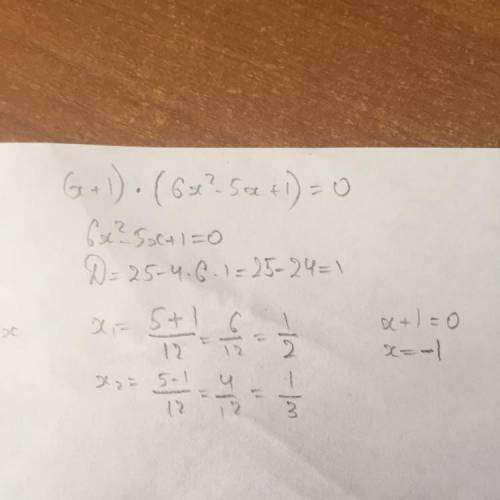 (x+1) · (6x²-5x+1)=0
6x²-5x+1=0
D=25-4·6·1=25-24=1
x₁= 5+1/12 = 6/12 = 1/2
x₂= 5-1/12 = 4/12 = 1/3
x+1=0
x=-1
x